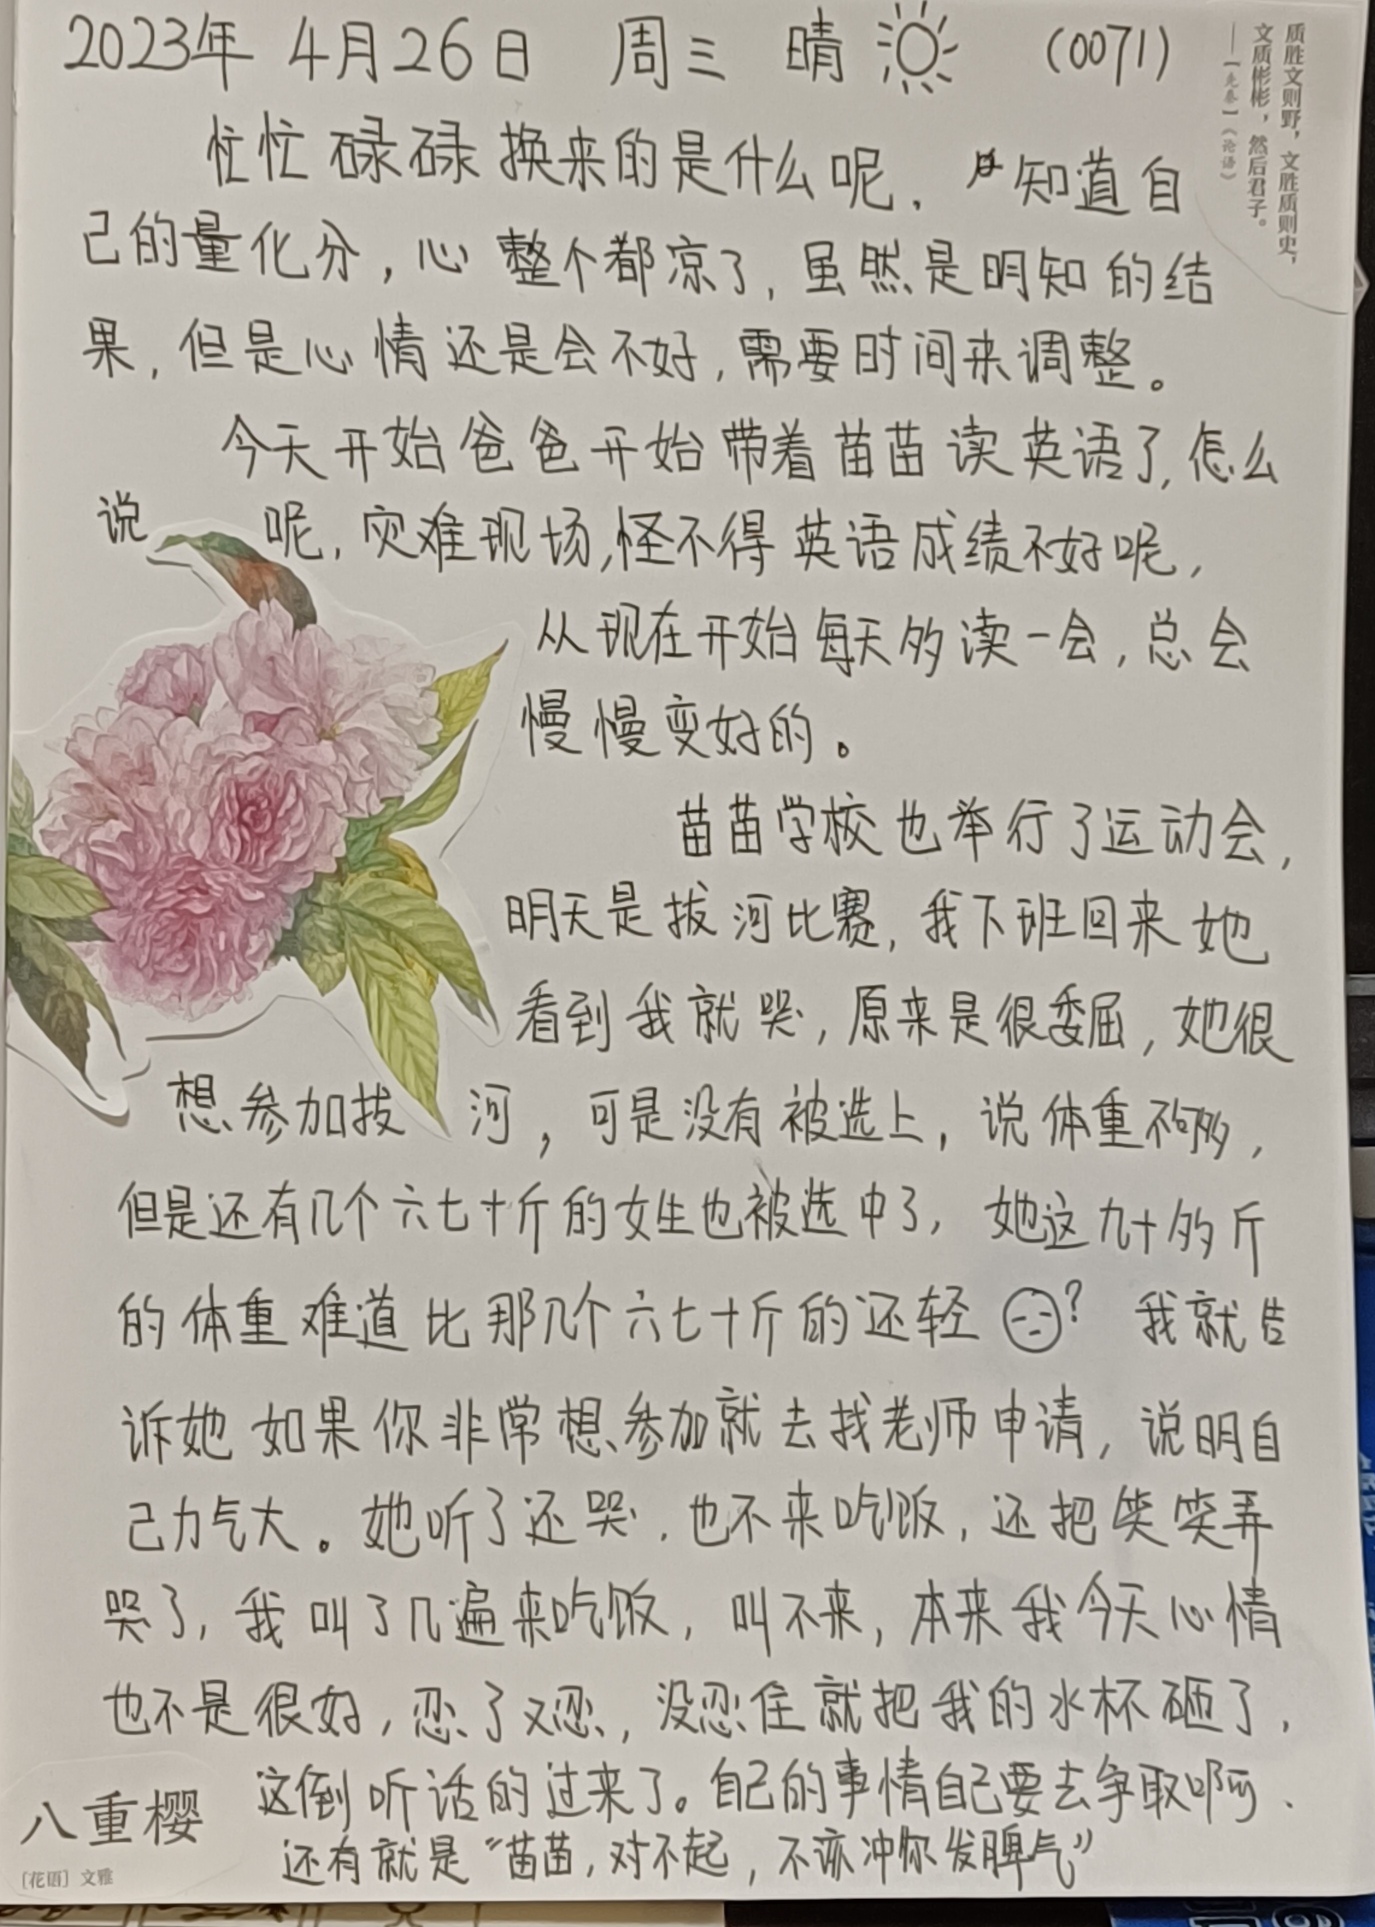 2023年 4月26日 周三 晴 (0071)
质胜文则野，文胜质则史，
文质彬彬，然后君子。
——[先秦]《论语》
忙忙碌碌换来的是什么呢，知道自
己的量化分，心整个都凉了，虽然是明知的结
果，但是心情还是会不好，需要时间来调整。
今天开始爸爸开始带着苗苗读英语了，怎么
说呢，灾难现场，怪不得英语成绩不好呢，
从现在开始每天多读一会，总会
慢慢变好的。
苗苗学校也举行了运动会，
明天是拔河比赛，我下班回来她
看到我就哭，原来是很委屈，她很
想参加拔河，可是没有被选上，说体重不够，
但是还有几个六七十斤的女生也被选中了，她这九十多斤
的体重难道比那几个六七十斤的还轻？我就告
诉她如果你非常想参加就去找老师申请，说明自
己力气大。她听了还哭，也不来吃饭，还把笑笑弄
哭了，我叫了几遍来吃饭，叫不来，本来我今天心情
也不是很好，忍了又忍，没忍住就把我的水杯砸了，
这倒听话的过来了。自己的事情自己要去争取啊、
还有就是“苗苗，对不起，不该冲你发脾气”
八重樱
［花语］文雅